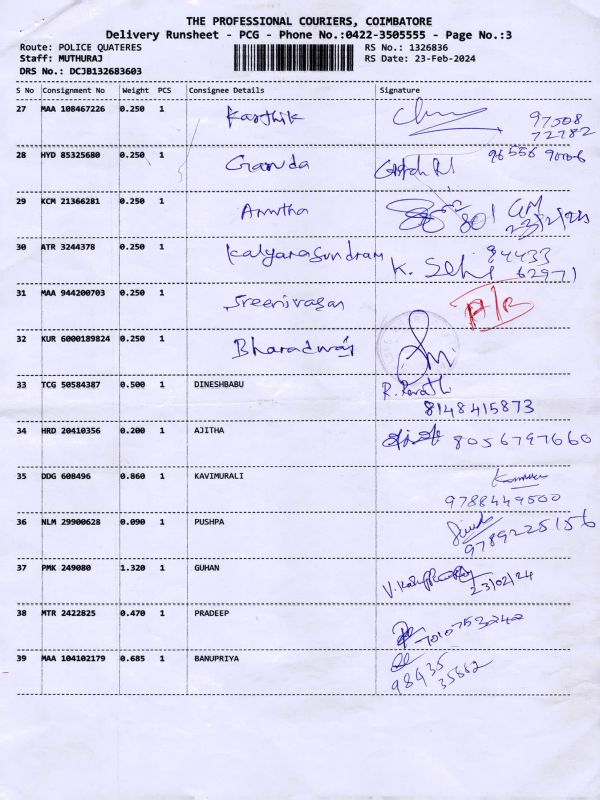 THE PROFESSIONAL COURIERS, COIMBATORE
Delivery Runsheet - PCG - Phone No.:0422-3505555 - Page No.:3
Route: POLICE QUATERES RS No.: 1326836
Staff: MUTHURAJ RS Date: 23-Feb-2024
DRS No.: DCJB132683603
S No Consignment No Weight PCS Consignee Details Signature
27 MAA 108467226 0.250 1 Karthik 97508
72782
28 HYD 85325680 0.250 1 Ganda 96556
29 KCM 21366281 0.250 1 Amutha 801
30 ATR 3244378 0.250 1 Kalyanasundram K. 94433
62971
31 MAA 944200703 0.250 1 Sreenivasan
32 KUR 6000189824 0.250 1 Bharadwaj
33 TCG 50584387 0.500 1 DINESHBABU R. Revathi
8148415873
34 HRD 20410356 0.200 1 AJITHA 8056797660
35 DDG 608496 0.860 1 KAVIMURALI
9788449500
36 NLM 29900628 0.090 1 PUSHPA
9789225156
37 PMK 249080 1.320 1 GUHAN
23/02/24
38 MTR 2422825 0.470 1 PRADEEP 7010753242
39 MAA 104102179 0.685 1 BANUPRIYA
98435
35662